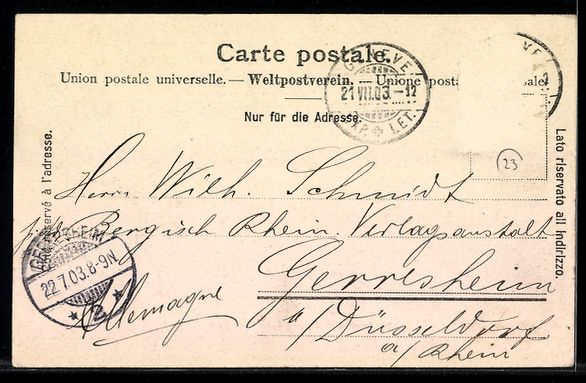 Carte postale.
Union postale universelle. — Weltpostverein. — Unione post ale
Nur für die Adresse.
Côté réservé à l'adresse.
Lato riservato all indirizzo.
GENÈVE
21 VII.03.-12
EXP. LET.
VE
23
Herrn Wilh. Schmidt
Bergisch Rhein. Verlagsanstalt
Gerresheim
a/Düsseldorf
a/Rhein
Allemagne
GERRESHEIM
22.7.03.8-9N.
* 2 *